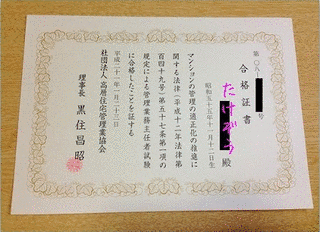 合格証書
第〇八-号
たけぞう殿
昭和五十三年十一月十二日生
マンションの管理の適正化の推進に
関する法律(平成十二年法律第
百四十九号)第五十七条第一項の
規定による管理業務主任者試験
に合格したことを証する
平成二十一年一月二十三日
社団法人 高層住宅管理業協会
理事長 黒住昌昭